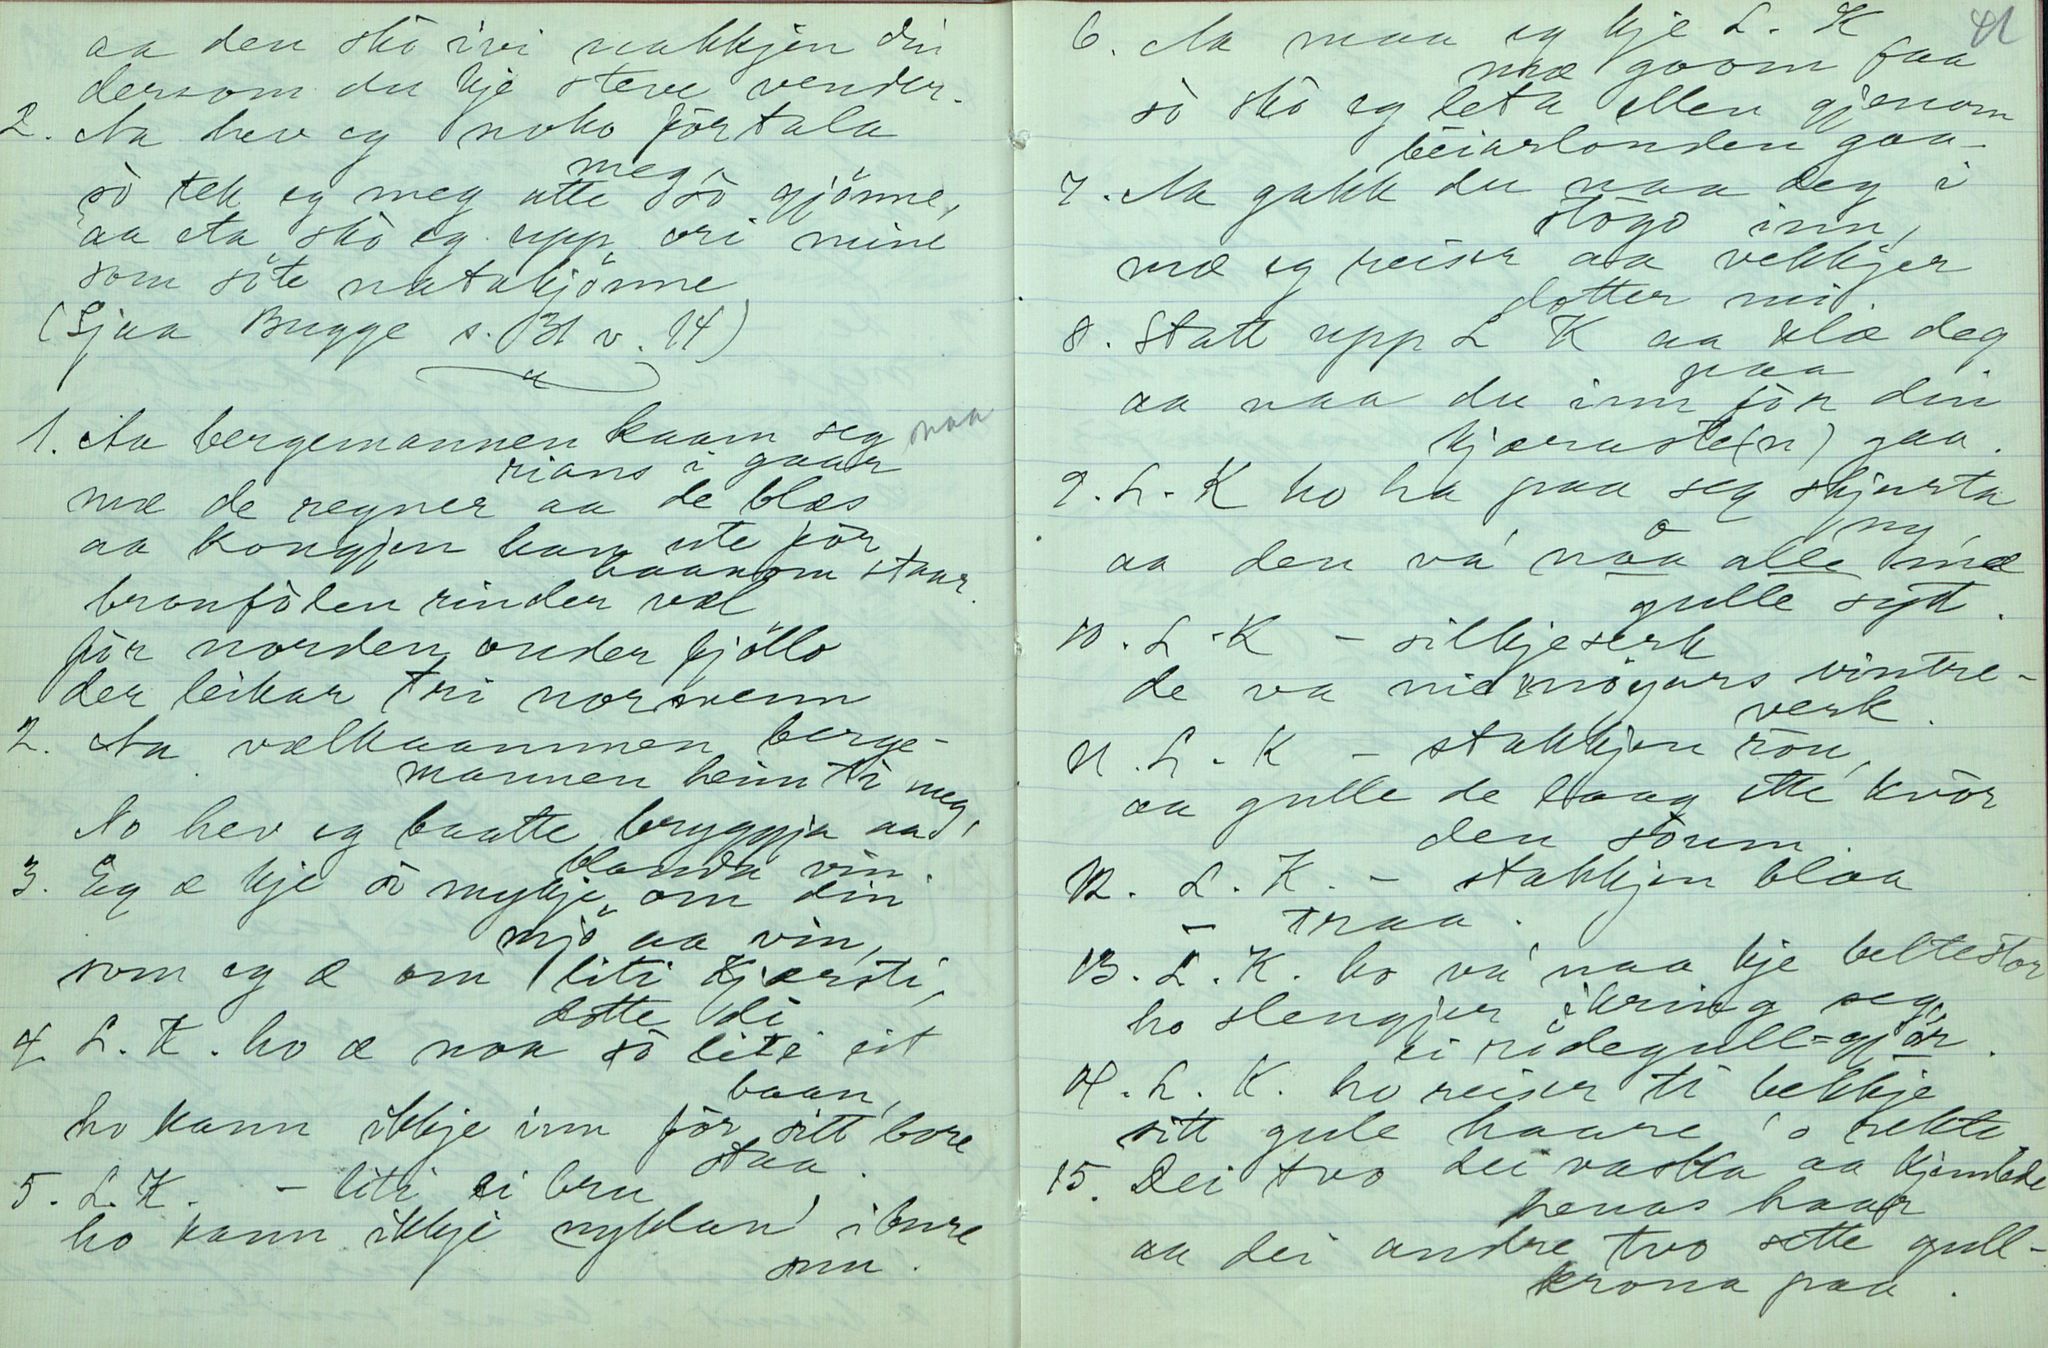 aa den skò ivi nakkjen din
dersom du kje steve vender.
2. Aa hev eg noko fórtala
meg,
sò tek eg meg atte sò gjönne,
aa eta skò eg upp ori mine
som söte natakjönne
(Sjaa Bugge s. 31 v. 14)
1. Aa bergemannen kaam seg naa
rians i gaar
mæ de regner aa de blæs
aa Kongjen han ute fór
haanom staar.
bronfòlen rinder væl
fór norden under fjöllo
der leikar tri norsvenn
2. Aa vælkaammen berge-
mannen heim ti meg,
No hev eg baatte bryggja aa
blanda vin.
3. Eg æ kje sò mykje om din
mjö aa vin,
som eg æ om liti Kjersti,
dotte di
4. L. K. ho æ naa sò lite eit
baan,
ho kann ikkje inn fór sitt bore
staa.
5. L. K. – liti ei bru
ho kann ikkje nyklan i bure
snu.
41
6. Aa maa eg kje L. K
mæ goom faa
sò skò eg leta ellen gjenom
beiarlonden gaa
7. Aa gakk du naa deg i
stògo inn,
mæ eg reiser aa vekkjer
dotter mi.
8. Statt upp L K aa klæ deg
paa
aa naa du inn fór din
kjæraste(n) gaa.
9. L. K ho ha paa seg skjorta
ny
aa den va naa alle mæ
gulle sydd.
10. L. K – silkjeserk
de va nie möyars vintre-
verk.
11. L. K – stakkjen rou,
aa gulle de laag ette kvòr
den soum.
12. L. K. – stakkjen blaa
– traa.
13. L. K. ho va naa kje beltestor
ho slengjer ikring seg
ei sidegull=gjór.
14. L. K. ho reiser ti bekkje
sitt gule haare o rekte
15. Dei tvo dei vaska aa kjembde
henas haar
aa dei andre tvo sette gull-
krona paa.